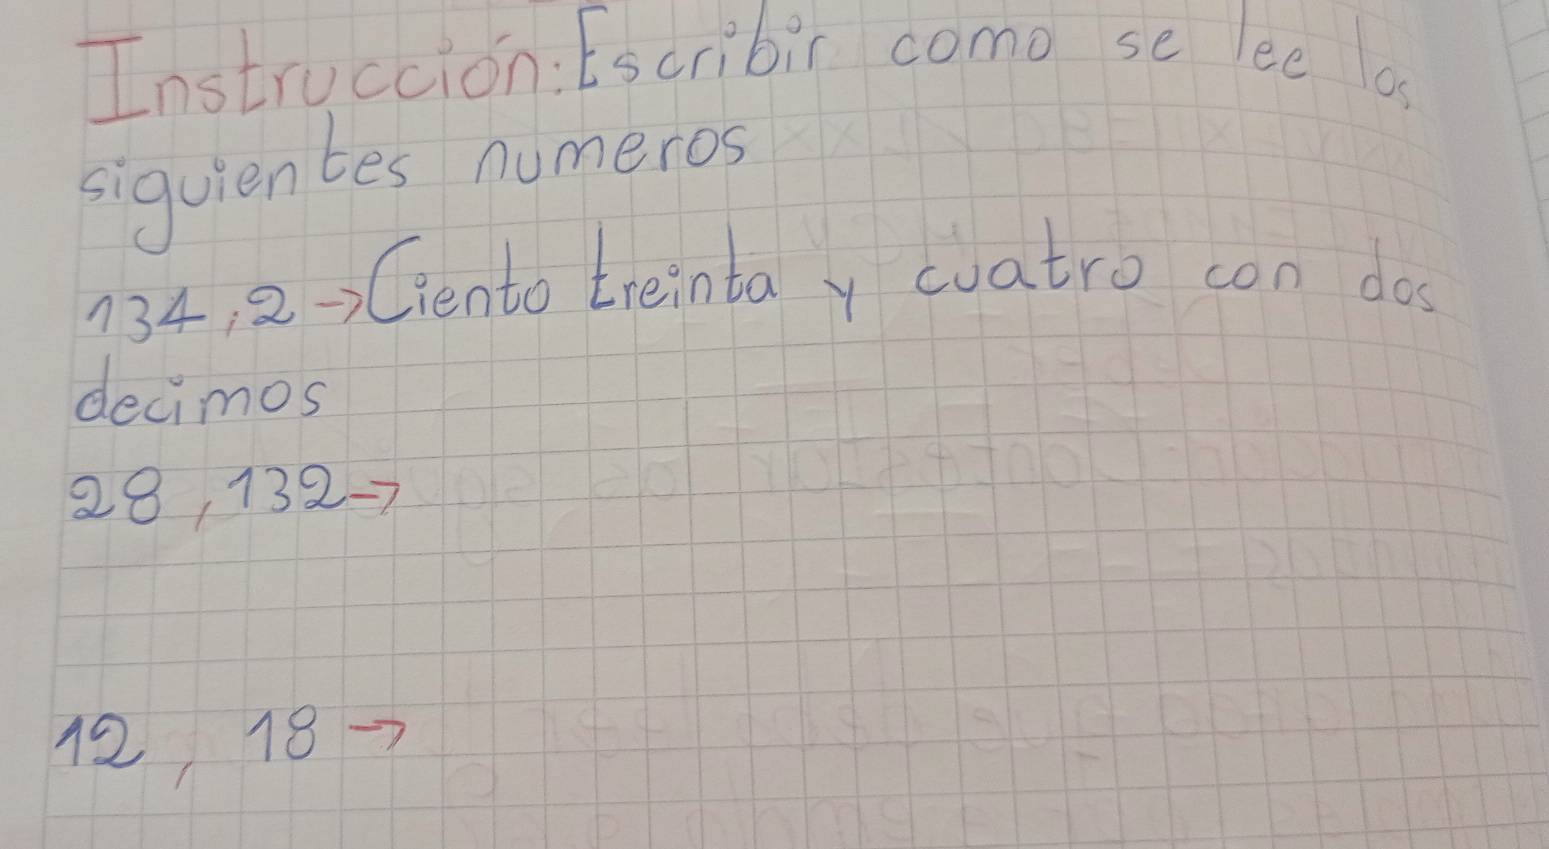 Instrucción: Escribir como se lee los
siguientes numeros
134,2→Ciento treinta y cuatro con dos
decimos
28,132→
12, 18→